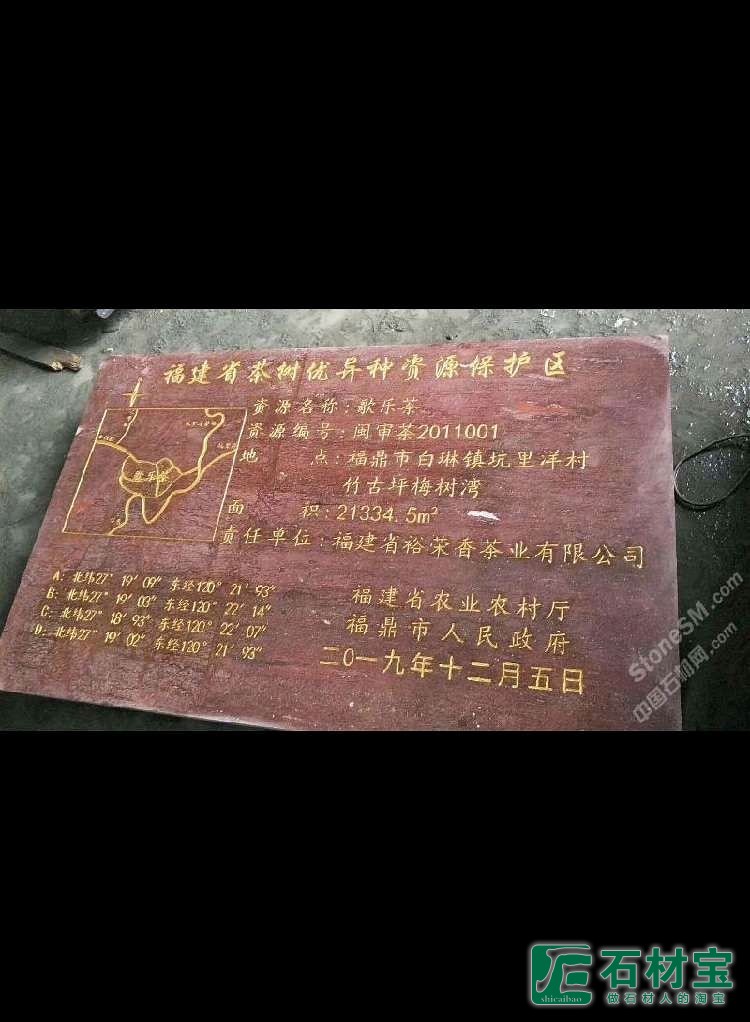 福建省茶树优异种资源保护区
资源名称：歌乐茶
资源编号：闽审茶2011001
地 点：福鼎市白琳镇坑里洋村
竹古坪梅树湾
面 积：21334.5m²
责任单位：福建省裕荣香茶业有限公司
歌乐茶
A：北纬27° 19′ 09″ 东经120° 21′ 93″
B：北纬27° 19′ 03″ 东经120° 22′ 14″
C：北纬27° 18′ 93″ 东经120° 22′ 07″
D：北纬27° 19′ 02″ 东经120° 21′ 93″
福建省农业农村厅
福鼎市人民政府
二〇一九年十二月五日
StoneSM.com
中国石机网.com
石材宝
shicaibao
做石材人的淘宝